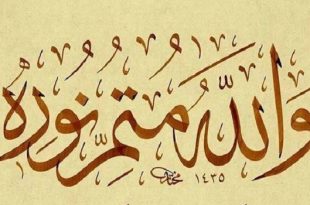 وَاللَّهُ مُتِمُّ نُورِهِ
١٤٣٥